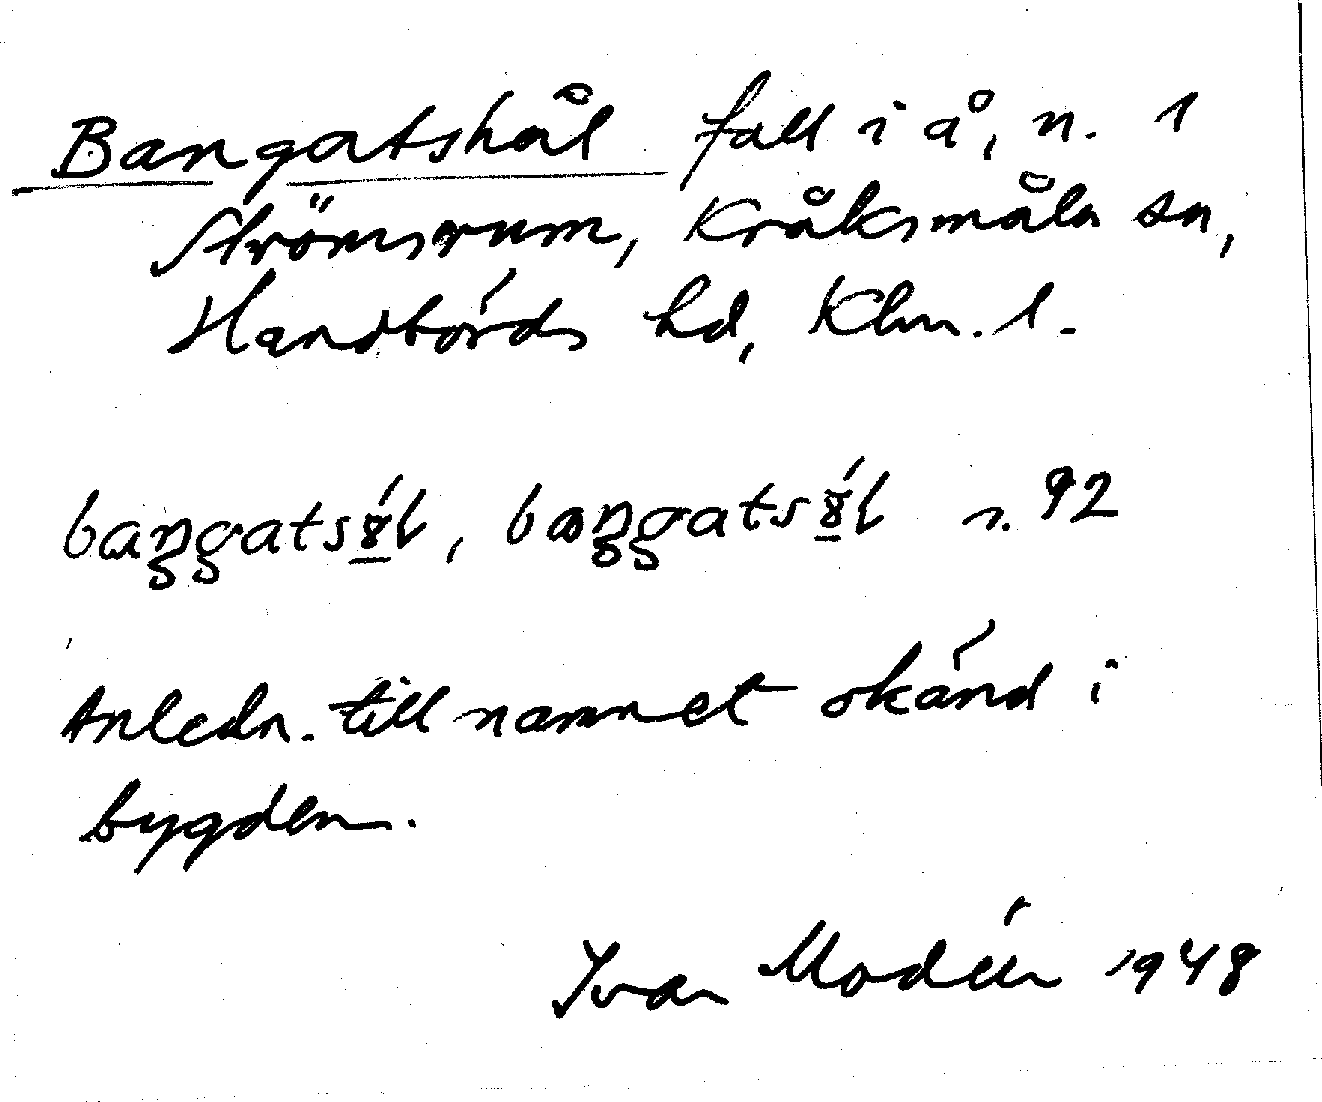 Bangatshål fall i å, n. 1
Strömsrum, Kråksmåla sn,
Handbörds hd, Klm. l.
r. 92
Anledn. till namnet okänd i
bygden.
Ivar Modéer 1948